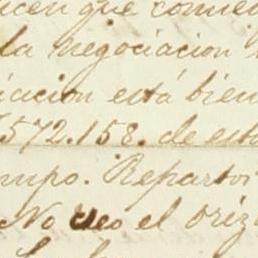 icen que convie
la negociacion
iacion está bien
$572.158. de est
mpo. Reparto
No veo el orig